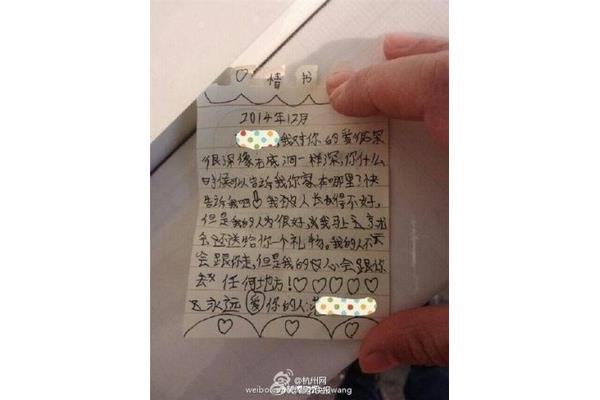 ♡ 情 书
2014年12月
我对你的爱很深
很深像无底洞一样深,你什么
时候可以告诉我你家在哪里?快
告诉我吧 我这人长得不好,
但是我的人为很好
会还送给你一个礼物。我的人不
会跟你走,但是我的心会跟你
去 任何地方!♡♡♡♡♡
永远 爱 你的人:
@杭州网